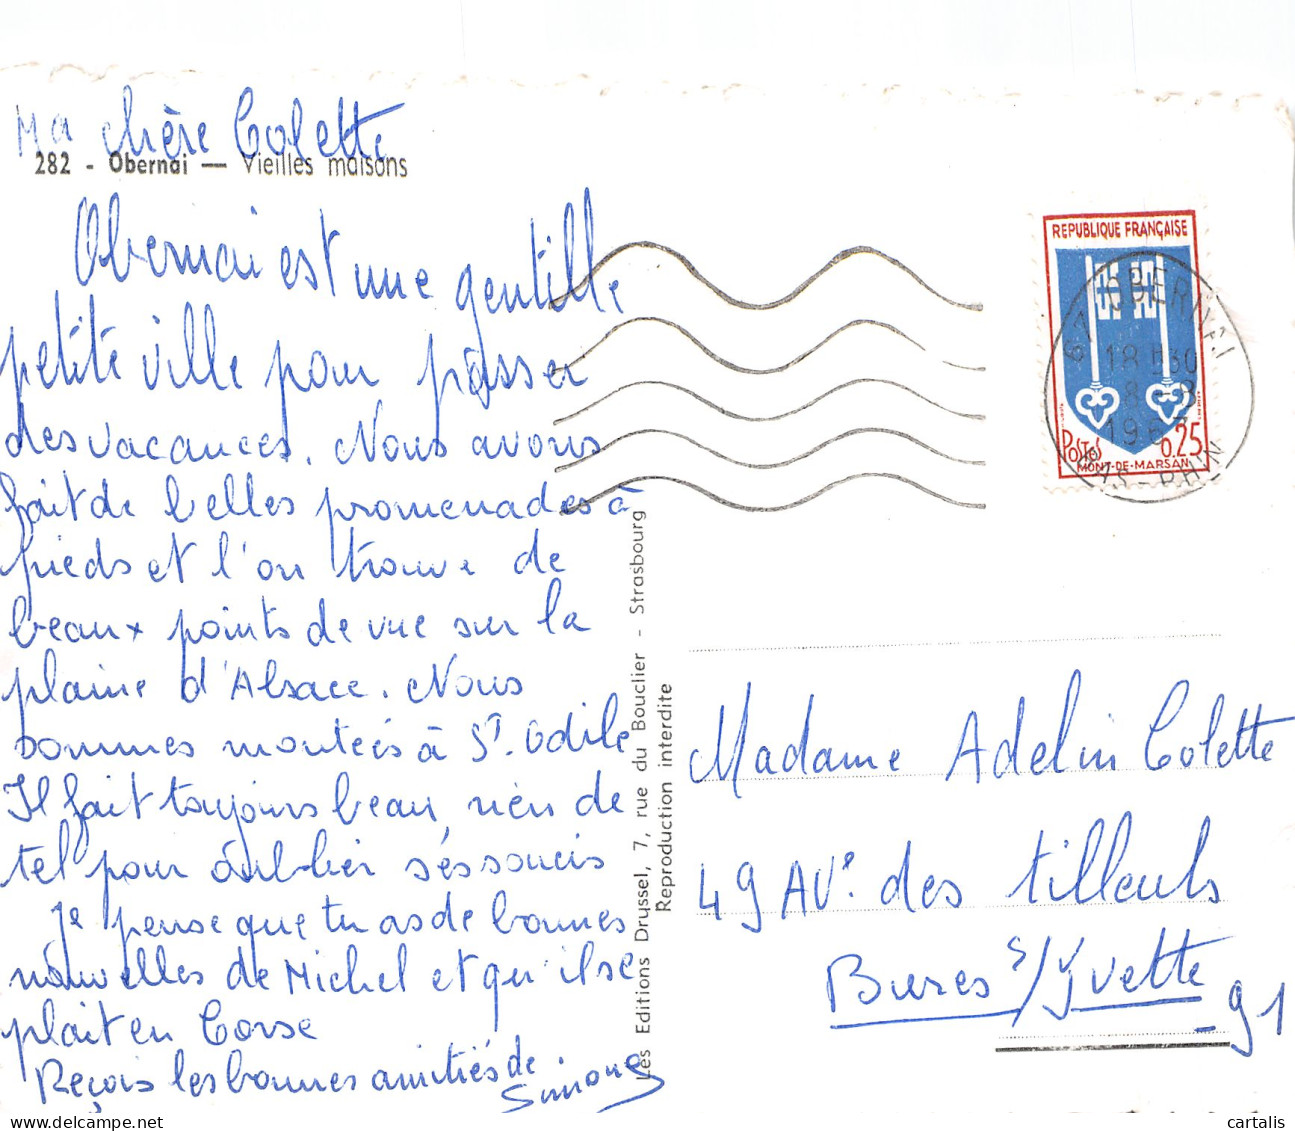 Ma chère Colette
282 - Obernai — Vieilles maisons
Obernai est une gentille
petite ville pour passer
des vacances. Nous avons
fait de belles promenades à
pieds et l'on trouve de
beaux points de vue sur la
plaine d'Alsace. Nous
sommes montées à St. Odile
Il fait toujours beau, rien de
tel pour oublier ses soucis
Je pense que tu as de bonnes
nouvelles de Michel et qu'il se
plait en Corse
Reçois les bonnes amitiés de
Simone
Les Editions Drussel, 7, rue du Bouclier - Strasbourg
Reproduction interdite
REPUBLIQUE FRANÇAISE
POSTES 0,25
MONT-DE-MARSAN
67 OBERNAI
18 H30
8 - 8
1967
BAS-RHIN
Madame Adelin Colette
49 AVe. des tilleuls
Bures s/Yvette
- 91
cartalis